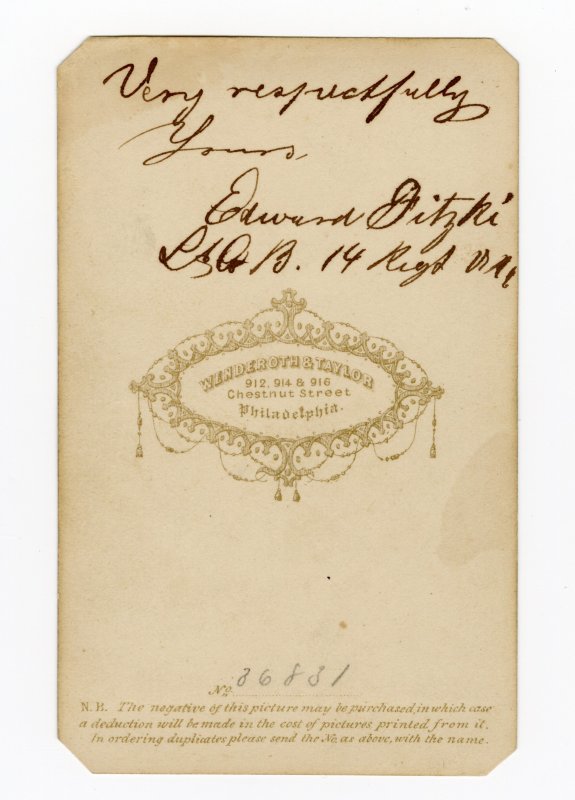 Very respectfully
Yours,
Edward Fitzki
Lt. Co B. 14 Regt
WENDEROTH & TAYLOR
912, 914 & 916
Chestnut Street
Philadelphia.
No. 36831
N.B. The negative of this picture may be purchased, in which case
a deduction will be made in the cost of pictures printed from it.
In ordering duplicates please send the No. as above, with the name.